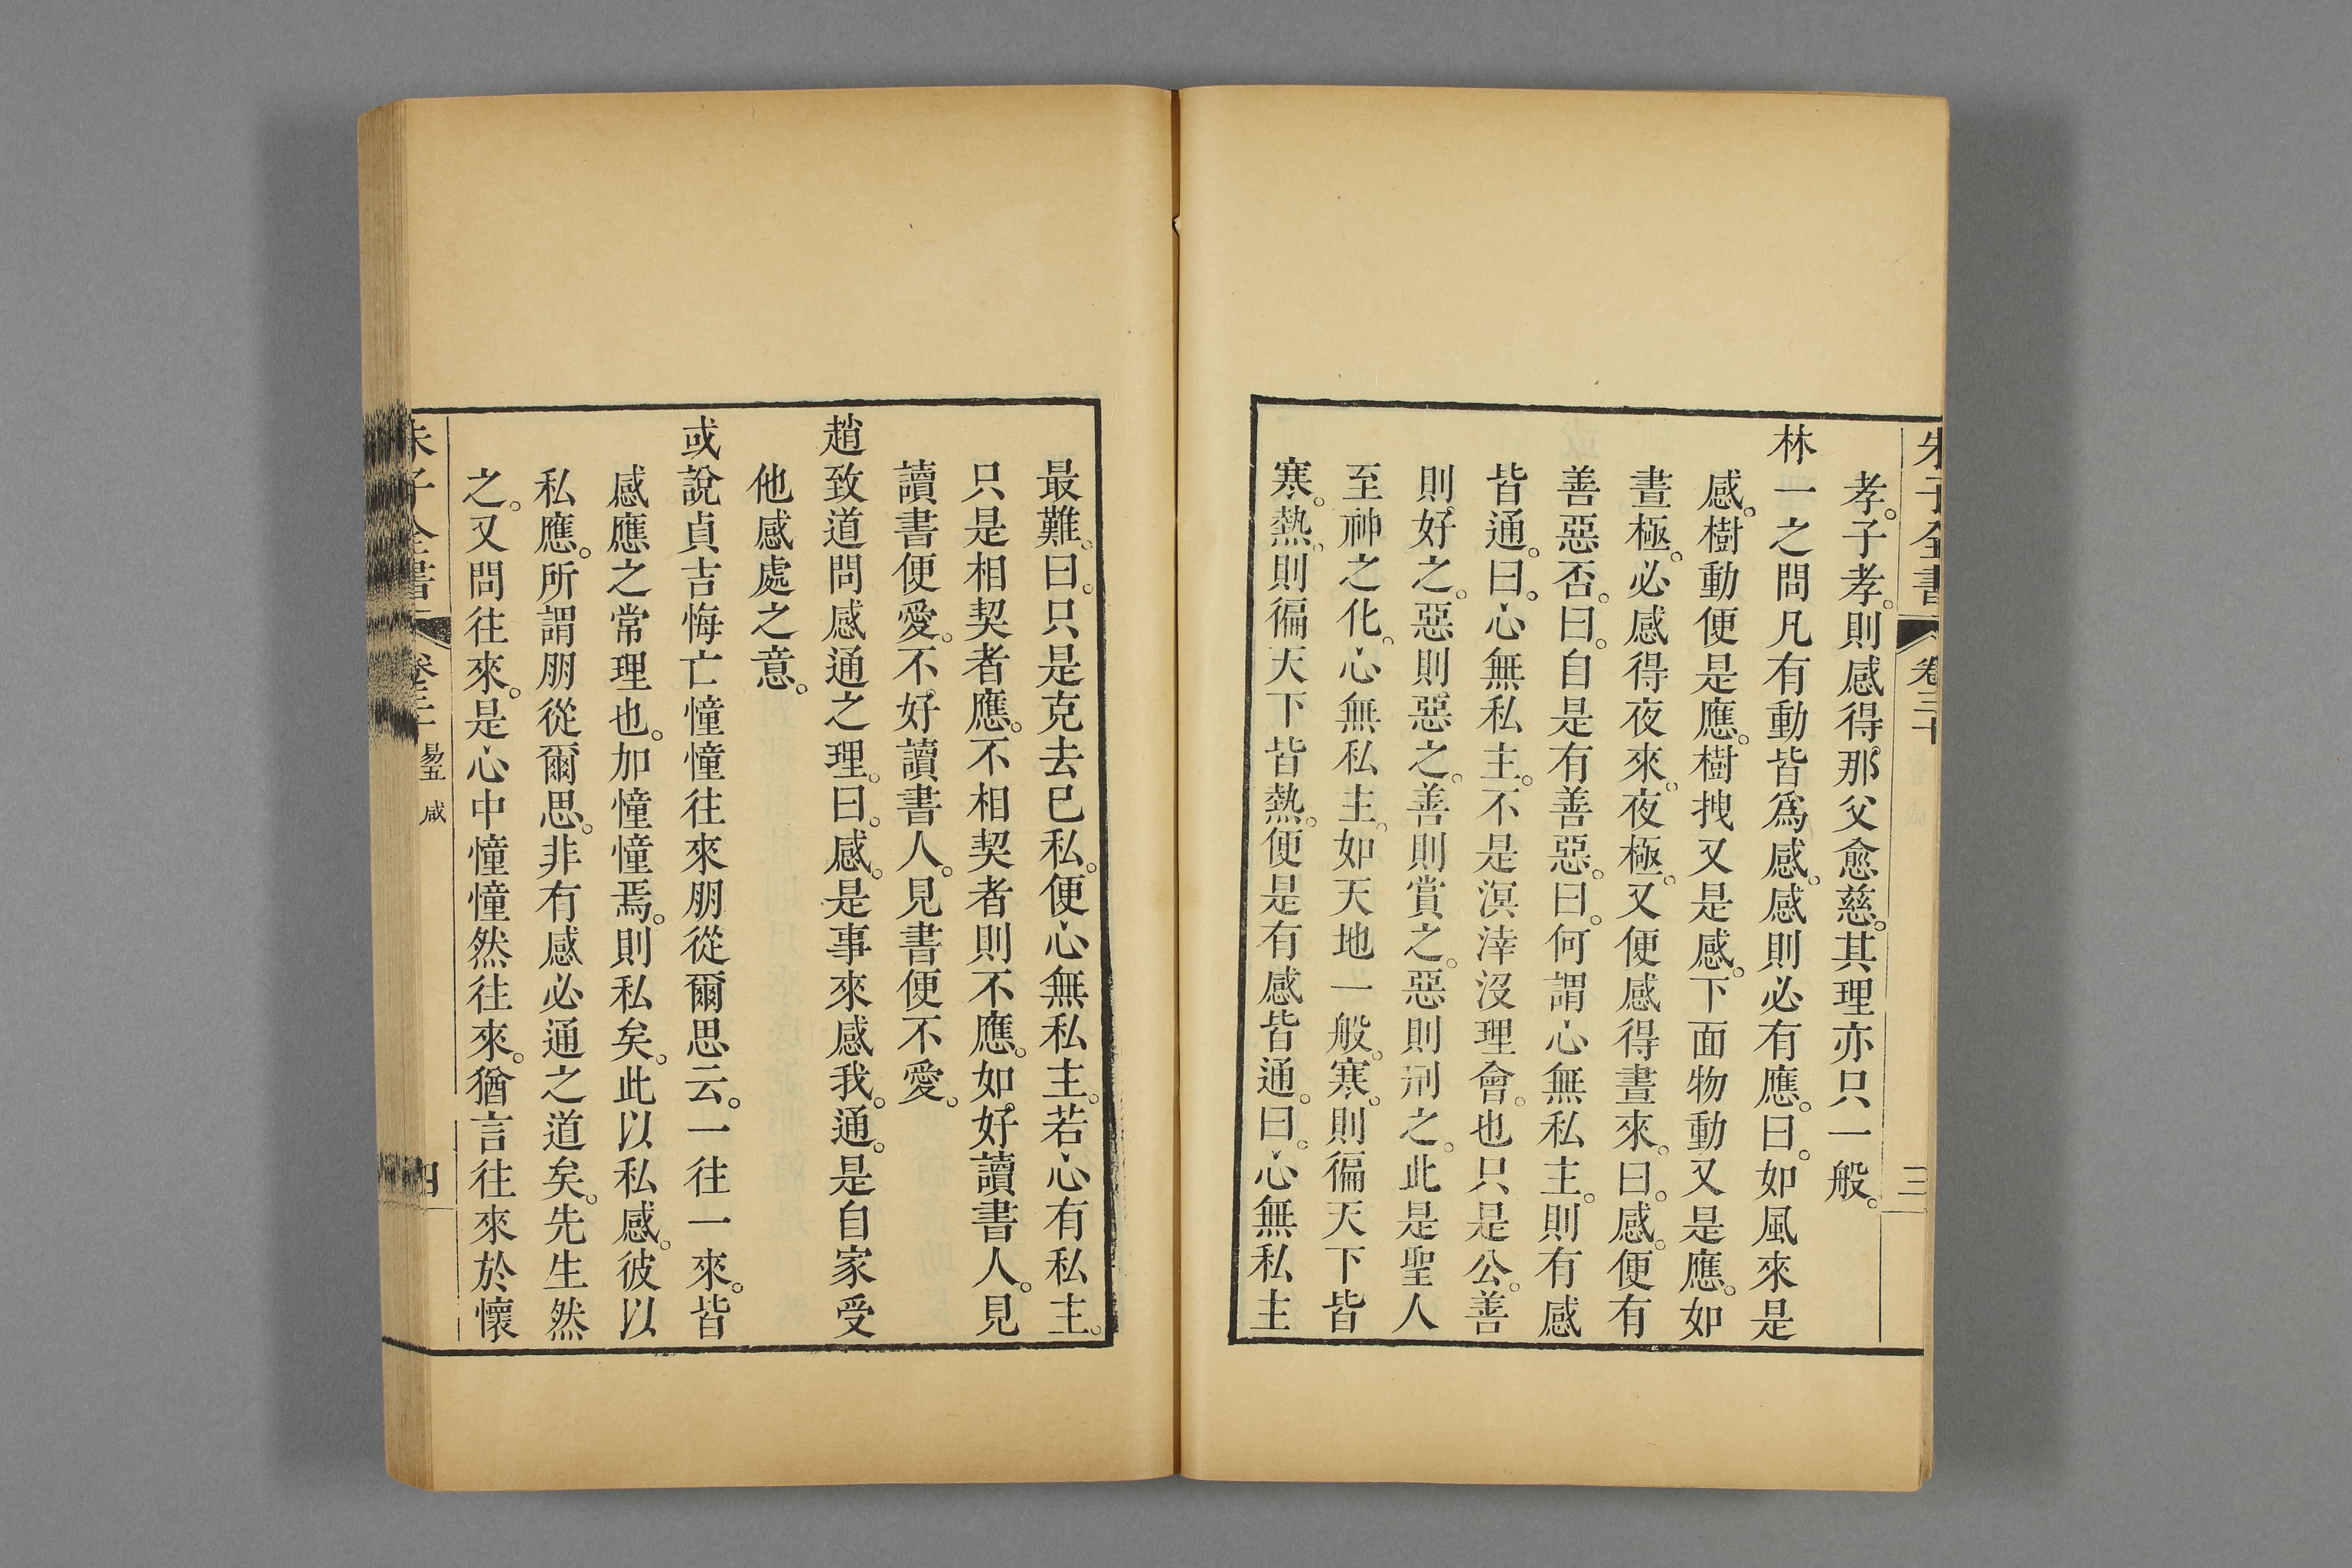 朱子全書 卷三十 三
孝。子孝。則感得那父愈慈。其理亦只一般。
林一之問凡有動皆爲感。感則必有應。曰。如風來是
感。樹動便是應。樹拽又是感。下面物動又是應。如
晝極。必感得夜來。夜極。又便感得晝來。曰。感。便有
善惡否。曰。自是有善惡。曰。何謂心無私主。則有感
皆通。曰。心無私主。不是溟涬沒理會。也只是公。善
則好之。惡則惡之。善則賞之。惡則刑之。此是聖人
至神之化。心無私主。如天地一般。寒。則徧天下皆
寒。熱。則徧天下皆熱。便是有感皆通。曰。心無私主
最難。曰。只是克去已私。便心無私主。若心有私主。
只是相契者應。不相契者則不應。如好讀書人。見
讀書便愛。不好讀書人。見書便不愛。
趙致道問感通之理。曰。感。是事來感我。通。是自家受
他感處之意。
或說貞吉悔亡憧憧往來朋從爾思云。一往一來。皆
感應之常理也。加憧憧焉。則私矣。此以私感。彼以
私應。所謂朋從爾思。非有感必通之道矣。先生然
之。又問往來。是心中憧憧然往來。猶言往來於懷
朱子全書 卷三十 易五 咸 四